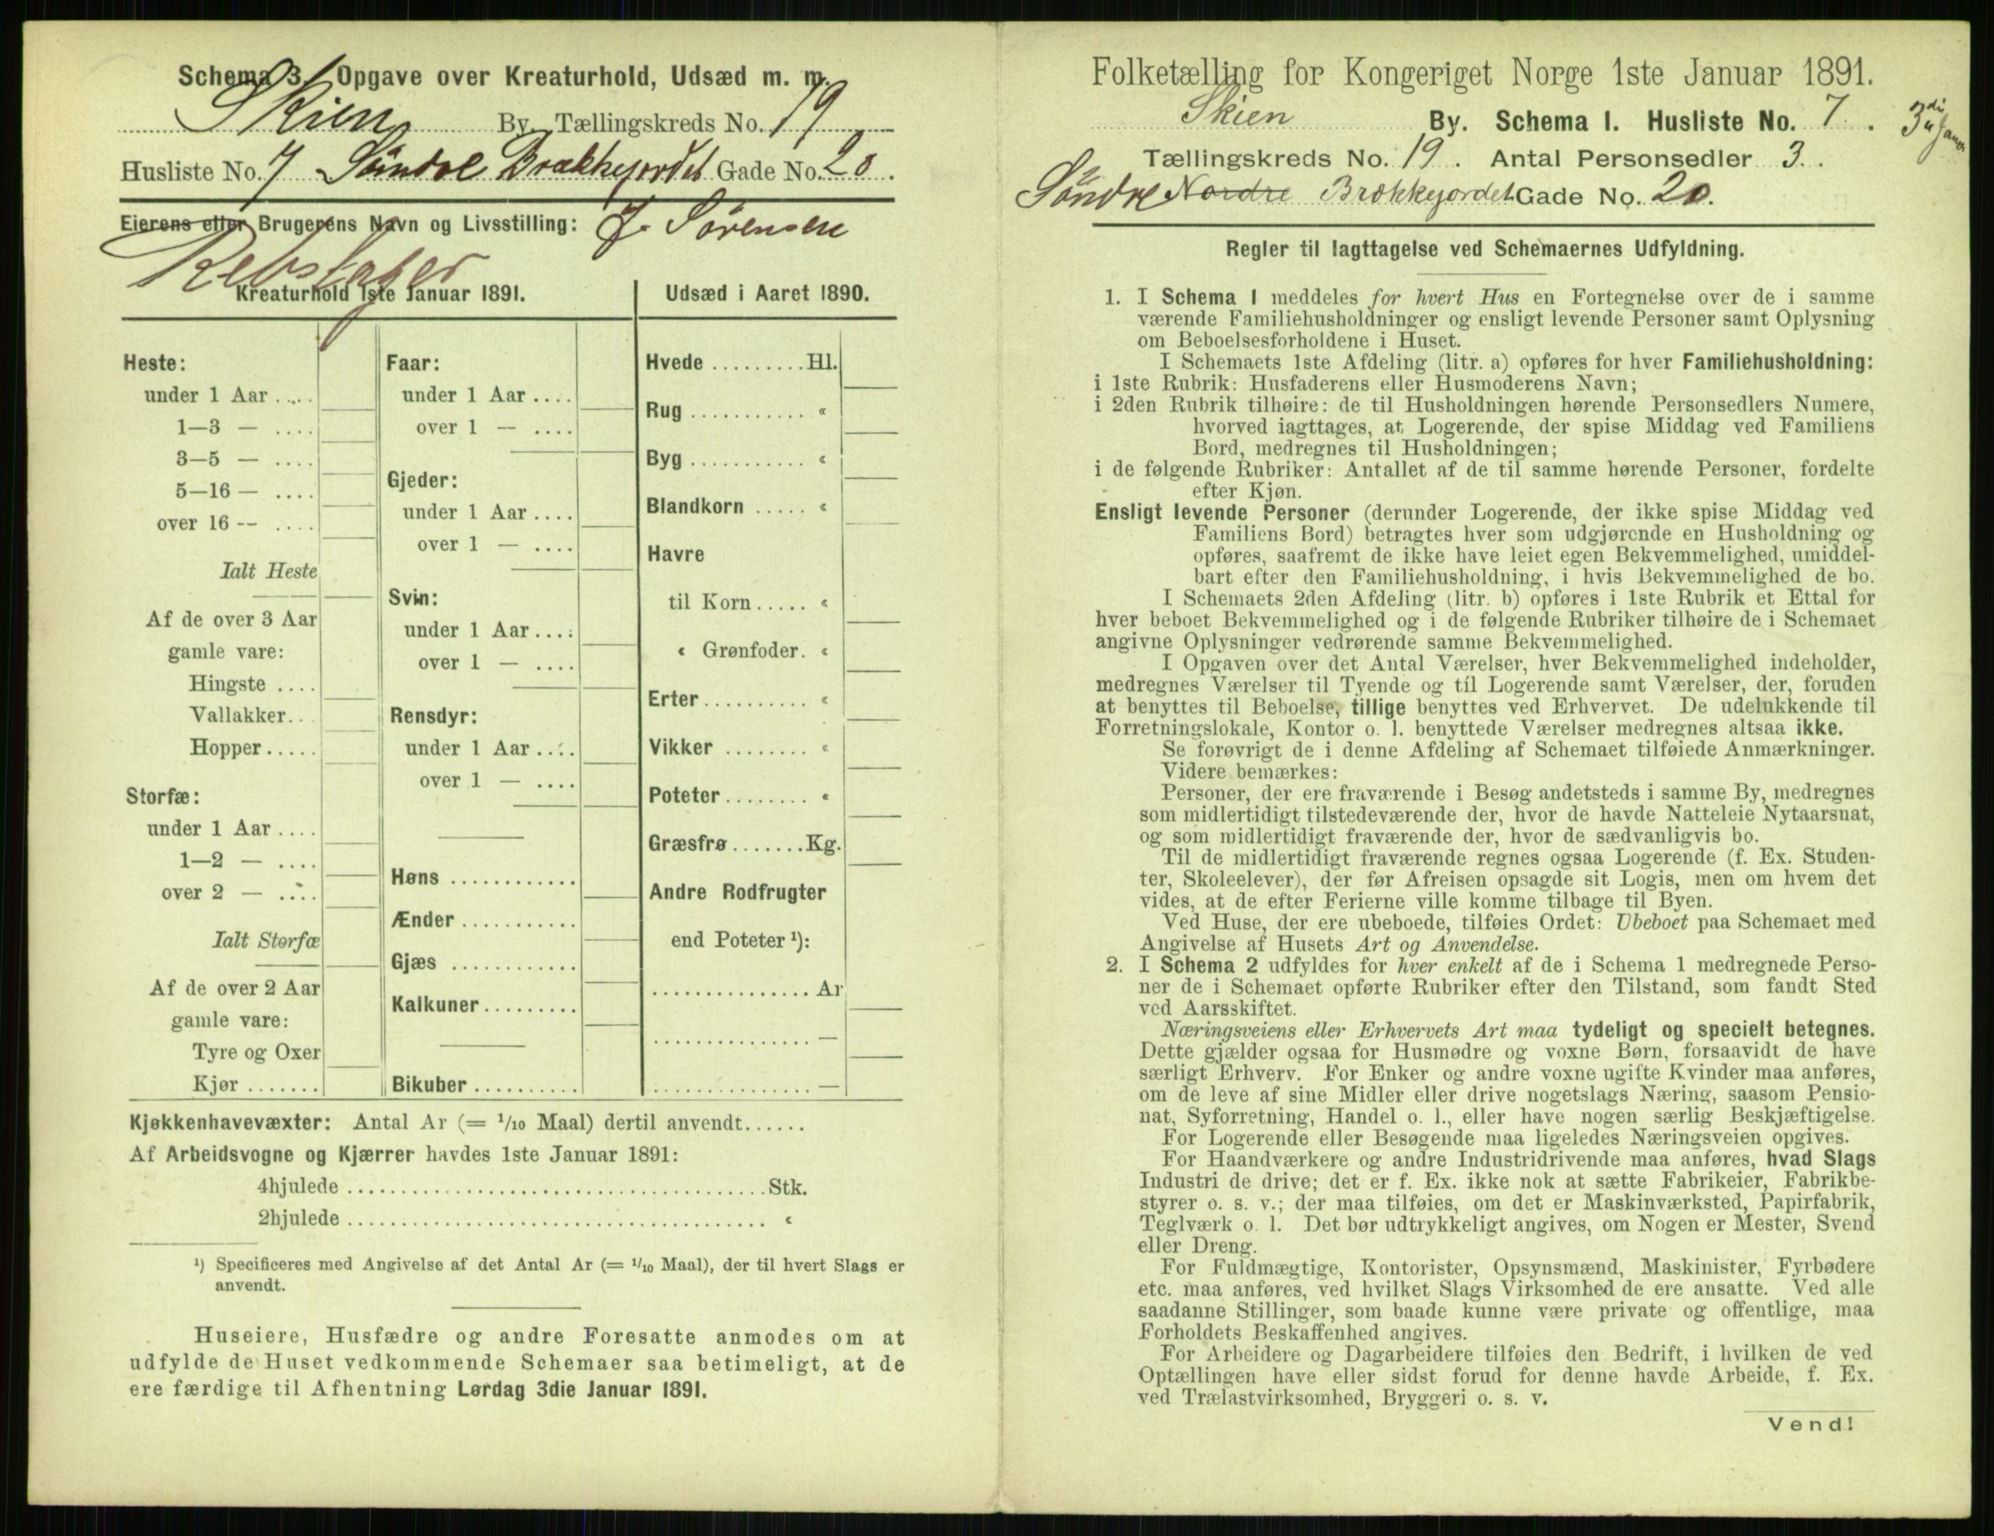 Schema 3. Opgave over Kreaturhold, Udsæd m. m.
Skien By. Tællingskreds No. 19
Husliste No. 7 Søndre Brækkejordet Gade No. 20.
Eierens eller Brugerens Navn og Livsstilling: J. Sørensen
Rebslager
Kreaturhold 1ste Januar 1891.
Heste:
under 1 Aar ....
1—3 — ....
3—5 — ....
5—16 — ....
over 16 -- ....
Ialt Heste
Af de over 3 Aar
gamle vare:
Hingste ....
Vallakker...
Hopper.....
Storfæ:
under 1 Aar ....
1—2 — ....
over 2 — ....
Ialt Storfæ
Af de over 2 Aar
gamle vare:
Tyre og Oxer
Kjør .......
Faar:
under 1 Aar ....
over 1 — ....
Gjeder:
under 1 Aar ....
over 1 — ....
Svin:
under 1 Aar ....
over 1 — ....
Rensdyr:
under 1 Aar ....
over 1 — ....
Høns ............
Ænder ...........
Gjæs ............
Kalkuner.........
Bikuber ..........
Udsæd i Aaret 1890.
Hvede .........Hl.
Rug ........... «
Byg ........... «
Blandkorn ..... «
Havre
til Korn..... «
« Grønfoder. «
Erter.......... «
Vikker ........ «
Poteter........ «
Græsfrø.......Kg.
Andre Rodfrugter
end Poteter ¹):
............... Ar
............... —
............... —
Kjøkkenhavevæxter: Antal Ar (= 1/10 Maal) dertil anvendt......
Af Arbeidsvogne og Kjærrer havdes 1ste Januar 1891:
4hjulede ....................................... Stk.
2hjulede ....................................... «
¹) Specificeres med Angivelse af det Antal Ar (= 1/10 Maal), der til hvert Slags er
anvendt.
Huseiere, Husfædre og andre Foresatte anmodes om at
udfylde de Huset vedkommende Schemaer saa betimeligt, at de
ere færdige til Afhentning Lørdag 3die Januar 1891.
Folketælling for Kongeriget Norge 1ste Januar 1891.
Skien By. Schema I. Husliste No. 7.
Tællingskreds No. 19. Antal Personsedler 3.
Søndre Nordre Brækkejordet Gade No. 20.
Regler til Iagttagelse ved Schemaernes Udfyldning.
1. I Schema 1 meddeles for hvert Hus en Fortegnelse over de i samme
værende Familiehusholdninger og ensligt levende Personer samt Oplysning
om Beboelsesforholdene i Huset.
I Schemaets 1ste Afdeling (litr. a) opføres for hver Familiehusholdning:
i 1ste Rubrik: Husfaderens eller Husmoderens Navn;
i 2den Rubrik tilhøire: de til Husholdningen hørende Personsedlers Numere,
hvorved iagttages, at Logerende, der spise Middag ved Familiens
Bord, medregnes til Husholdningen;
i de følgende Rubriker: Antallet af de til samme hørende Personer, fordelte
efter Kjøn.
Ensligt levende Personer (derunder Logerende, der ikke spise Middag ved
Familiens Bord) betragtes hver som udgjørende en Husholdning og
opføres, saafremt de ikke have leiet egen Bekvemmelighed, umiddel-
bart efter den Familiehusholdning, i hvis Bekvemmelighed de bo.
I Schemaets 2den Afdeling (litr. b) opføres i 1ste Rubrik et Ettal for
hver beboet Bekvemmelighed og i de følgende Rubriker tilhøire de i Schemaet
angivne Oplysninger vedrørende samme Bekvemmelighed.
I Opgaven over det Antal Værelser, hver Bekvemmelighed indeholder,
medregnes Værelser til Tyende og til Logerende samt Værelser, der, foruden
at benyttes til Beboelse, tillige benyttes ved Erhvervet. De udelukkende til
Forretningslokale, Kontor o. l. benyttede Værelser medregnes altsaa ikke.
Se forøvrigt de i denne Afdeling af Schemaet tilføiede Anmærkninger.
Videre bemærkes:
Personer, der ere fraværende i Besøg andetsteds i samme By, medregnes
som midlertidigt tilstedeværende der, hvor de havde Natteleie Nytaarsnat,
og som midlertidigt fraværende der, hvor de sædvanligvis bo.
Til de midlertidigt fraværende regnes ogsaa Logerende (f. Ex. Studen-
ter, Skoleelever), der før Afreisen opsagde sit Logis, men om hvem det
vides, at de efter Ferierne ville komme tilbage til Byen.
Ved Huse, der ere ubeboede, tilføies Ordet: Ubeboet paa Schemaet med
Angivelse af Husets Art og Anvendelse.
2. I Schema 2 udfyldes for hver enkelt af de i Schema 1 medregnede Perso-
ner de i Schemaet opførte Rubriker efter den Tilstand, som fandt Sted
ved Aarsskiftet.
Næringsveiens eller Erhvervets Art maa tydeligt og specielt betegnes.
Dette gjælder ogsaa for Husmødre og voxne Børn, forsaavidt de have
særligt Erhverv. For Enker og andre voxne ugifte Kvinder maa anføres,
om de leve af sine Midler eller drive nogetslags Næring, saasom Pensio-
nat, Syforretning, Handel o. l., eller have nogen særlig Beskjæftigelse.
For Logerende eller Besøgende maa ligeledes Næringsveien opgives.
For Haandværkere og andre Industridrivende maa anføres, hvad Slags
Industri de drive; det er f. Ex. ikke nok at sætte Fabrikeier, Fabrikbe-
styrer o. s. v.; der maa tilføies, om det er Maskinværksted, Papirfabrik,
Teglværk o. l. Det bør udtrykkeligt angives, om Nogen er Mester, Svend
eller Dreng.
For Fuldmægtige, Kontorister, Opsynsmænd, Maskinister, Fyrbødere
etc. maa anføres, ved hvilket Slags Virksomhed de ere ansatte. Ved alle
saadanne Stillinger, som baade kunne være private og offentlige, maa
Forholdets Beskaffenhed angives.
For Arbeidere og Dagarbeidere tilføies den Bedrift, i hvilken de ved
Optællingen have eller sidst forud for denne havde Arbeide, f. Ex.
ved Trælastvirksomhed, Bryggeri o. s. v.
Vend!